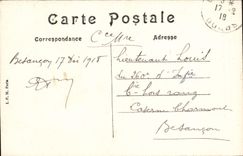 Carte Postale
Correspondance
Adresse
Besançon 17 Déc 1918
Lieutenant Louis
du 260e d'Infie
Cie hors rang
Caserne Charmont
Besançon